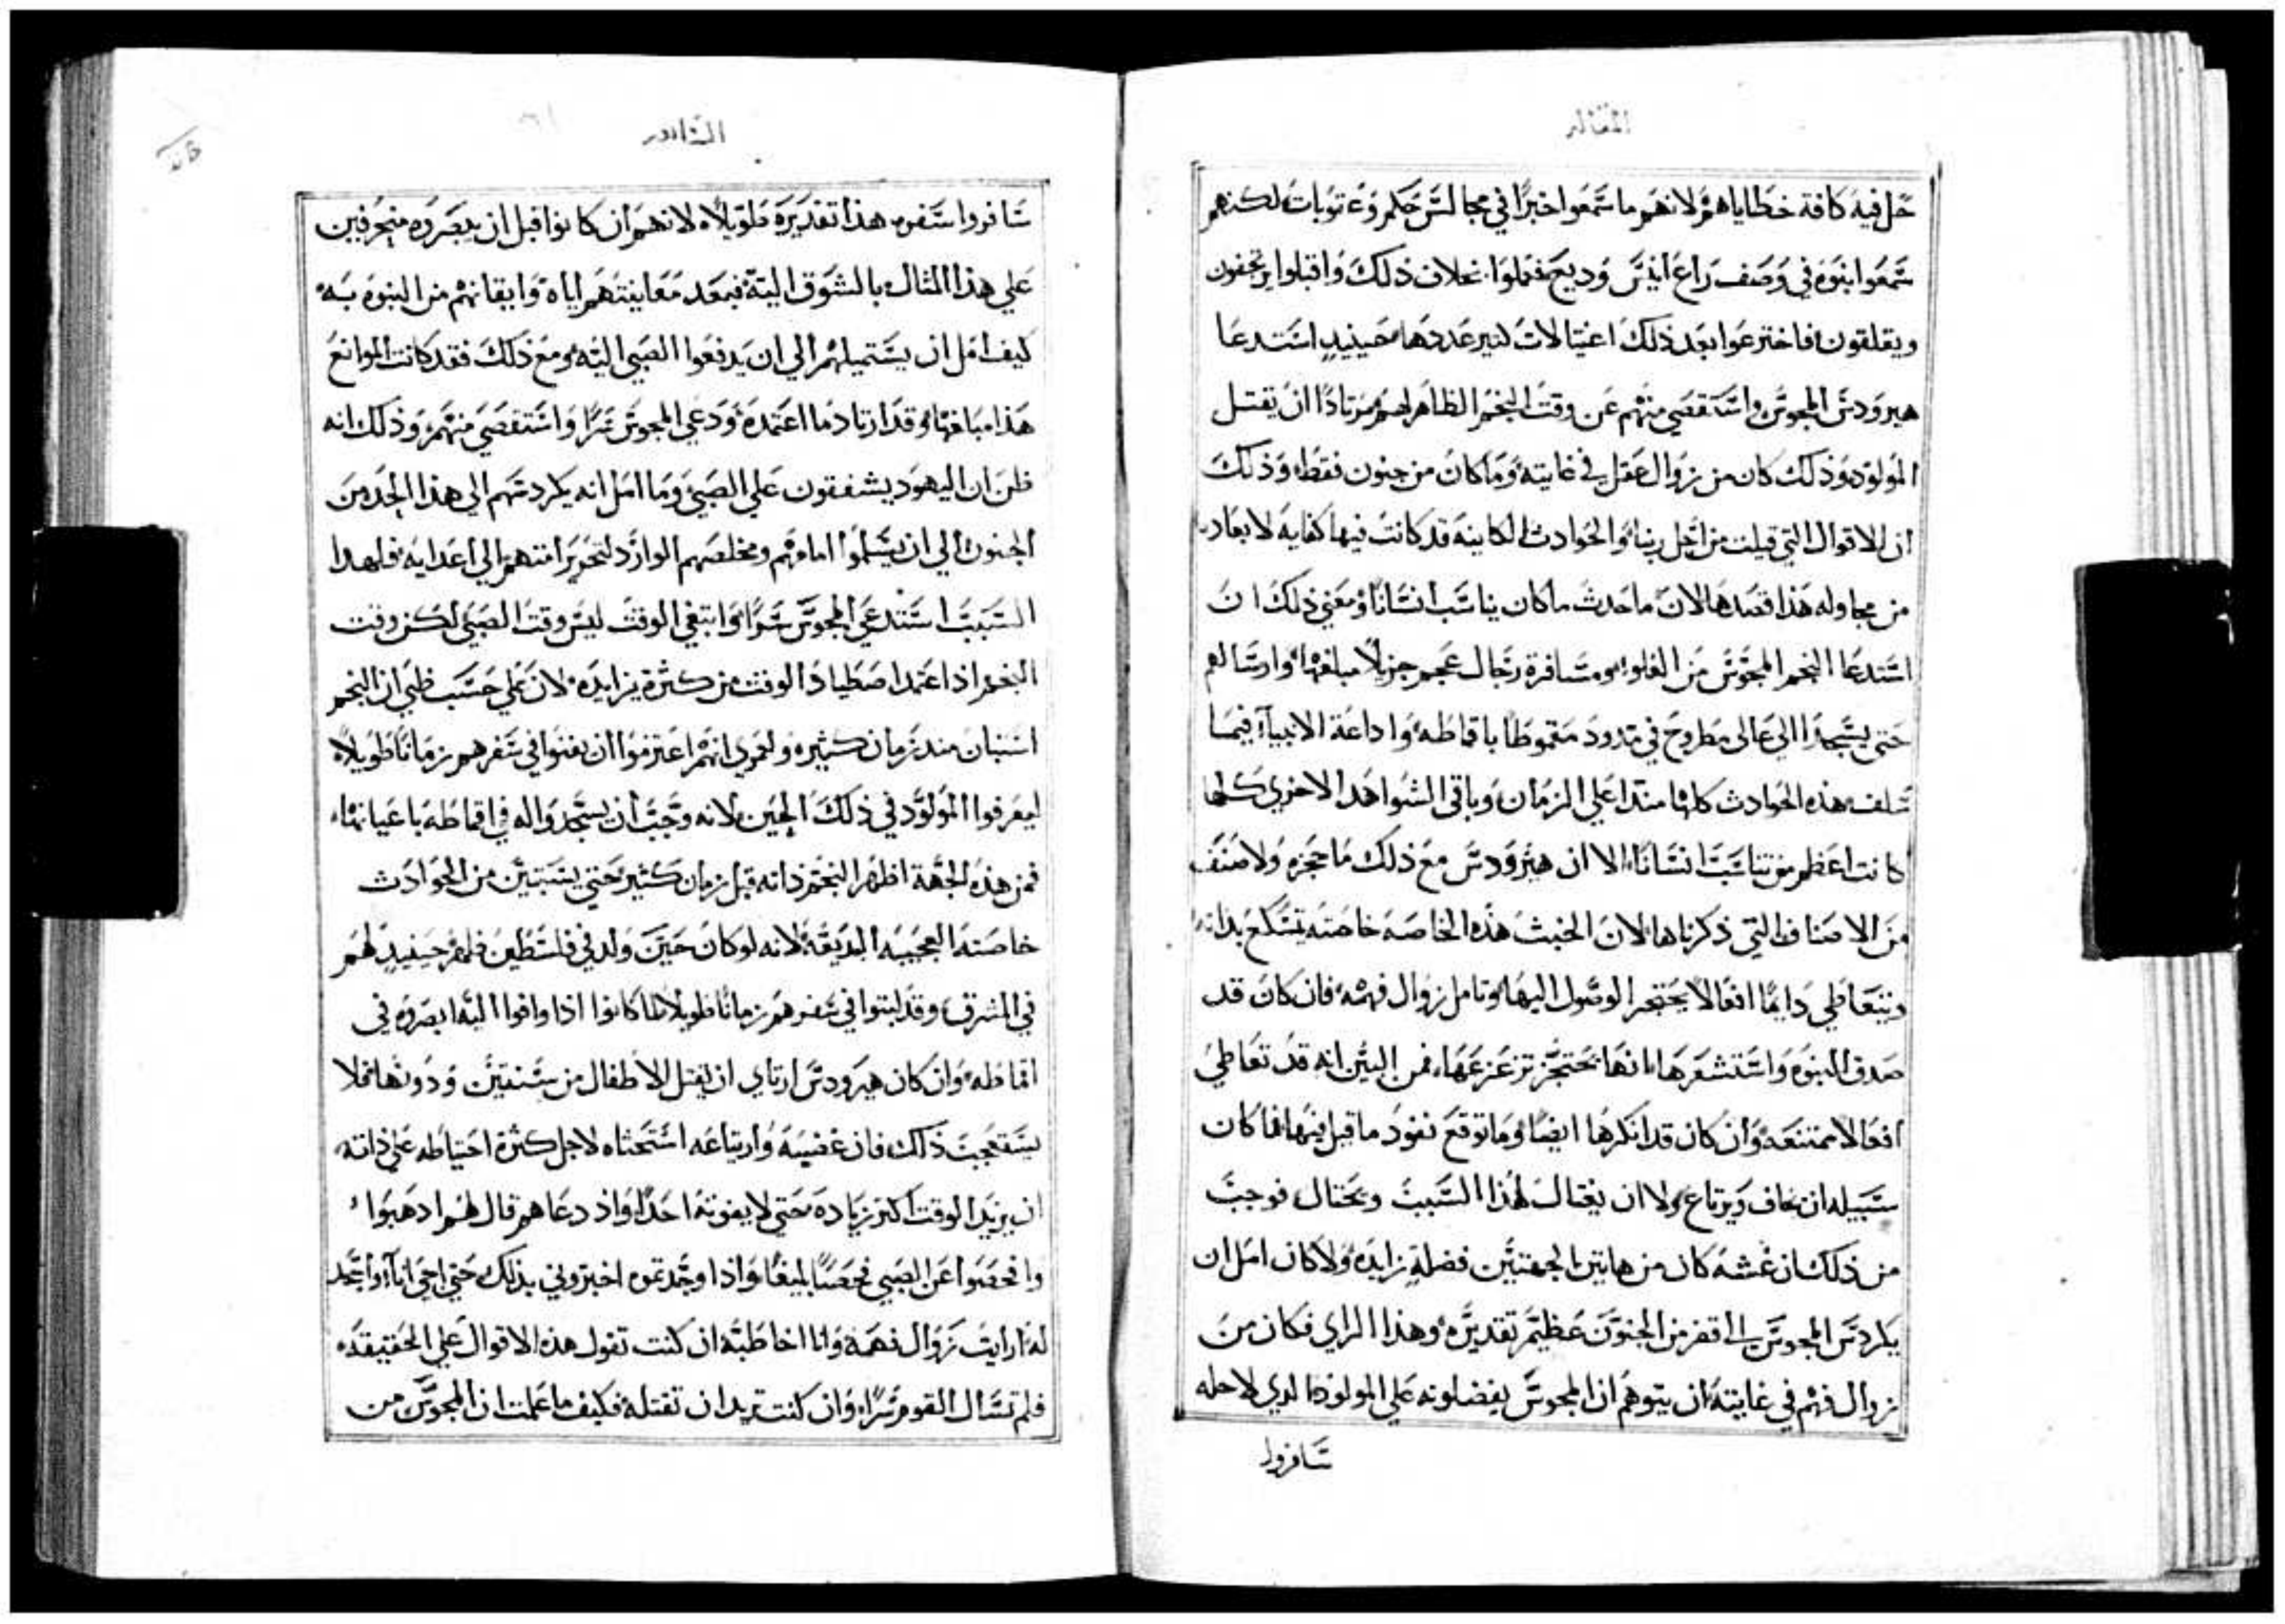 المقاله
حل فيه كافة خطاياهم لانهم ما سمعوا خبرًا في مجالس حكم وعقوبات لكنهم
سمعوا بنبوه في وصف راع انيس وديع فعملوا بخلاف ذلك واقبلوا يرتجفون
ويقلقون فاخترعوا بعد ذلك اغتيالات كثير عددها حينيدٍ استدعا
هيرودس المجوس واستقصي منهم عن وقت النجم الظاهر لهم مرتادًا ان يقتل
المولود وذلك كان من زوال عقل في غايته وما كان من جنون فقط وذلك
ان الاقوال التي قيلت من اجل ربنا والحوادث الكاينه قد كانت فيها كفايه لابعاده
من محاوله هذا قصدها لان ما حدث ما كان يناسب انسانًا ومعني ذلك ان
استدعا النجم المجوس من العلو ومسافرة رجال عجم جزيلًا مبلغها وارسالهم
حتي يسجدوا الي عالى مطروح في مدود متقموطًا باقماطه واذاعة الانبيآ فيما
سلف هذه الحوادث كلها متدا علي الزمان وباقي الشواهد الاخري كلها
كانت اعظم من تناسب انسانًا الا ان هيرودس مع ذلك ما حجزه ولا صنف
من الاصناف التي ذكرناها لان الخبث هذه الخاصه خاصته يتسكع بذاته
ويتعاطي دايمًا افعالًا يحتجر الوصول اليها وتامل زوال فهمه فان كان قد
صدق النبوه واستشعرها انها يحتجز تزعزعها فمن البين انه قد تعاطي
افعالًا ممتنعه وان كان قد انكرها ايضًا وما توقع نفود ما قيل فيها فما كان
سبيله ان يخاف ويرتاع ولا ان يغتال لهذا السبب ويحتال فوجب
من ذلك ان غشه كان من هاتين الجهتين فضلةٍ زايده ولا كان امل ان
يكردس المجوس الي اقفر من الجنون عظيم تقديره وهذا الراي فكان من
زوال فهم في غايته ان يتوهم ان المجوس يفضلونه علي المولود الذي لاجله
سافروا
الثامنه
سافروا سفره هذا تقديره طويلًا لانهم ان كانوا قبل ان يبصروه منحرفين
علي هذا المثال بالشوق اليه فبعد معاينتهم اياه وايقانهم من النبوه به
كيف امل ان يستميلهم الي ان يدفعوا الصبي اليه ومع ذلك فقد كانت الموانع
هذا مبلغها وقد ارتاد ما اعتمده ودعي المجوس سرًا واستقصي منهم وذلك انه
ظن ان اليهود يشفقون علي الصبي وما امل انه يكردسهم الي هذا الحد من
الجنون الي ان يسلموا امامهم ومخلصهم الوارد لتحرير امتهم الي اعدايه فلهدا
السبب استدعي المجوس سرًا وابتغي الوقت ليس وقت الصبي لكن وقت
النجم اذ اعتمد اصطياد الوقت من كثرة يزايده لان علي حسب ظني ان النجم
استبان مند زمان كثيره ولعمري انهم اعتزموا ان يفنوا في سفرهم زمانًا طويلًا
ليعرفوا المولود في ذلك الحين لانه وجب ان يسجدوا له في اقماطه باعيانها
فمن هذه الجهة اظهر النجم ذاته قبل زمان كثير حتي يستبين من الحوادث
خاصته العجيبه البديعه لانه لو كان حين ولد في فلسطين فلهر حينيدٍ لهم
في المشرق وقد لبتوا في سفرهم زمانًا طويلًا لما كانوا اذا وافوا اليه ابصروه في
اقماطه وان كان هيرودس ارتاي ان يقتل الاطفال من سنتين ودونها فلا
يستعجب ذلك فان غضبه وارتياعه استحثاه لاجل كثرة احتياطه علي ذاته
ان يزيد الوقت اكثر زياده حتي لا يفوته احدًا واذ دعاهم قال لهم ادهبوا
وافحصوا عن الصبي فحصًا بليغًا واذا وجدتموه اخبروني بذلك حتي اجي انا واسجد
له ارايت زوال فهمه وانا اخاطبه ان كنت تقول هذه الاقوال علي الحقيقه
فلم تسال القوم سرًا وان كنت تريد ان تقتله فكيف ما علمت ان المجوس من